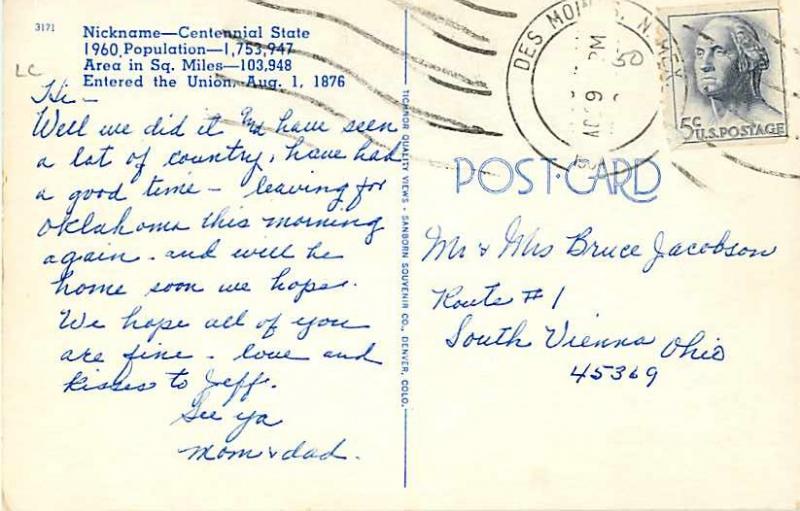 3171
Nickname—Centennial State
1960 Population—1,753,947
Area in Sq. Miles—103,948
Entered the Union, Aug. 1, 1876
LC
Hi —
Well we did it and have seen
a lot of country, have had
a good time — leaving for
Oklahoma this morning
again. and will be
home soon we hope.
We hope all of you
are fine. love and
kisses to Jeff.
See ya
Mom & dad.
TICHNOR QUALITY VIEWS - SANBORN SOUVENIR CO., DENVER, COLO.
DES MOINES, N. MEX
PM
9
5c U.S. POSTAGE
POST-CARD
Mr & Mrs Bruce Jacobson
Route #1
South Vienna Ohio
45369